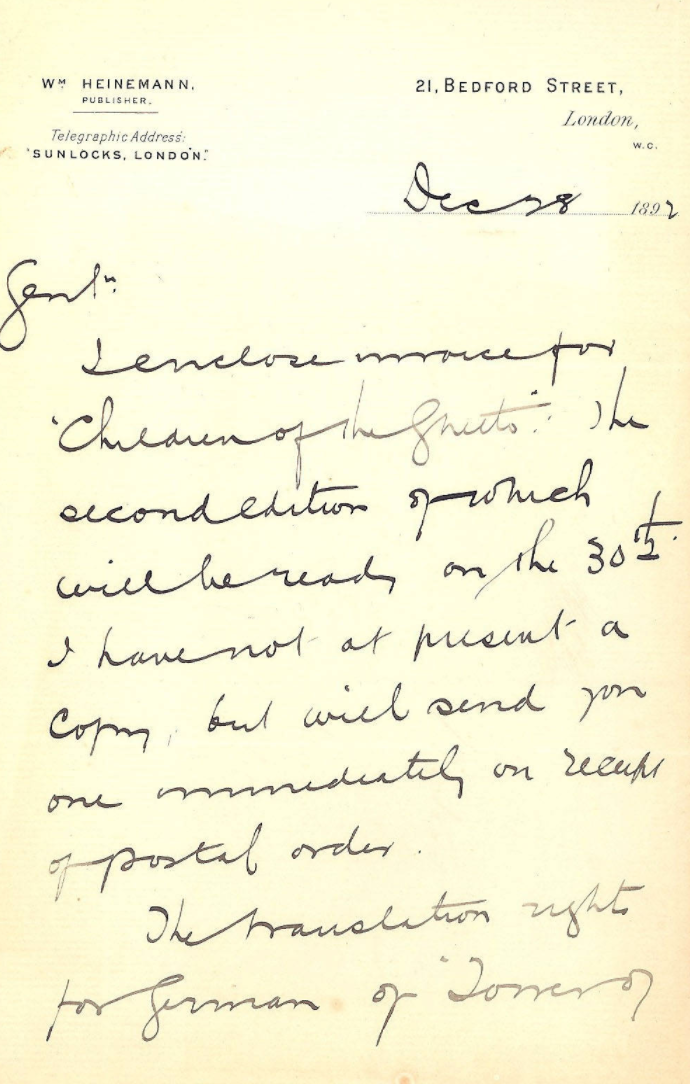 WM HEINEMANN,
PUBLISHER.
Telegraphic Address:
"SUNLOCKS, LONDON."
21, BEDFORD STREET,
London,
W.C.
Dec 28 1892
Gentn
I enclose invoice for
"Children of the Ghetto". The
second edition of which
will be ready on the 30th.
I have not at present a
copy, but will send you
one immediately on receipt
of postal order.
The translation rights
for German of "Tower of